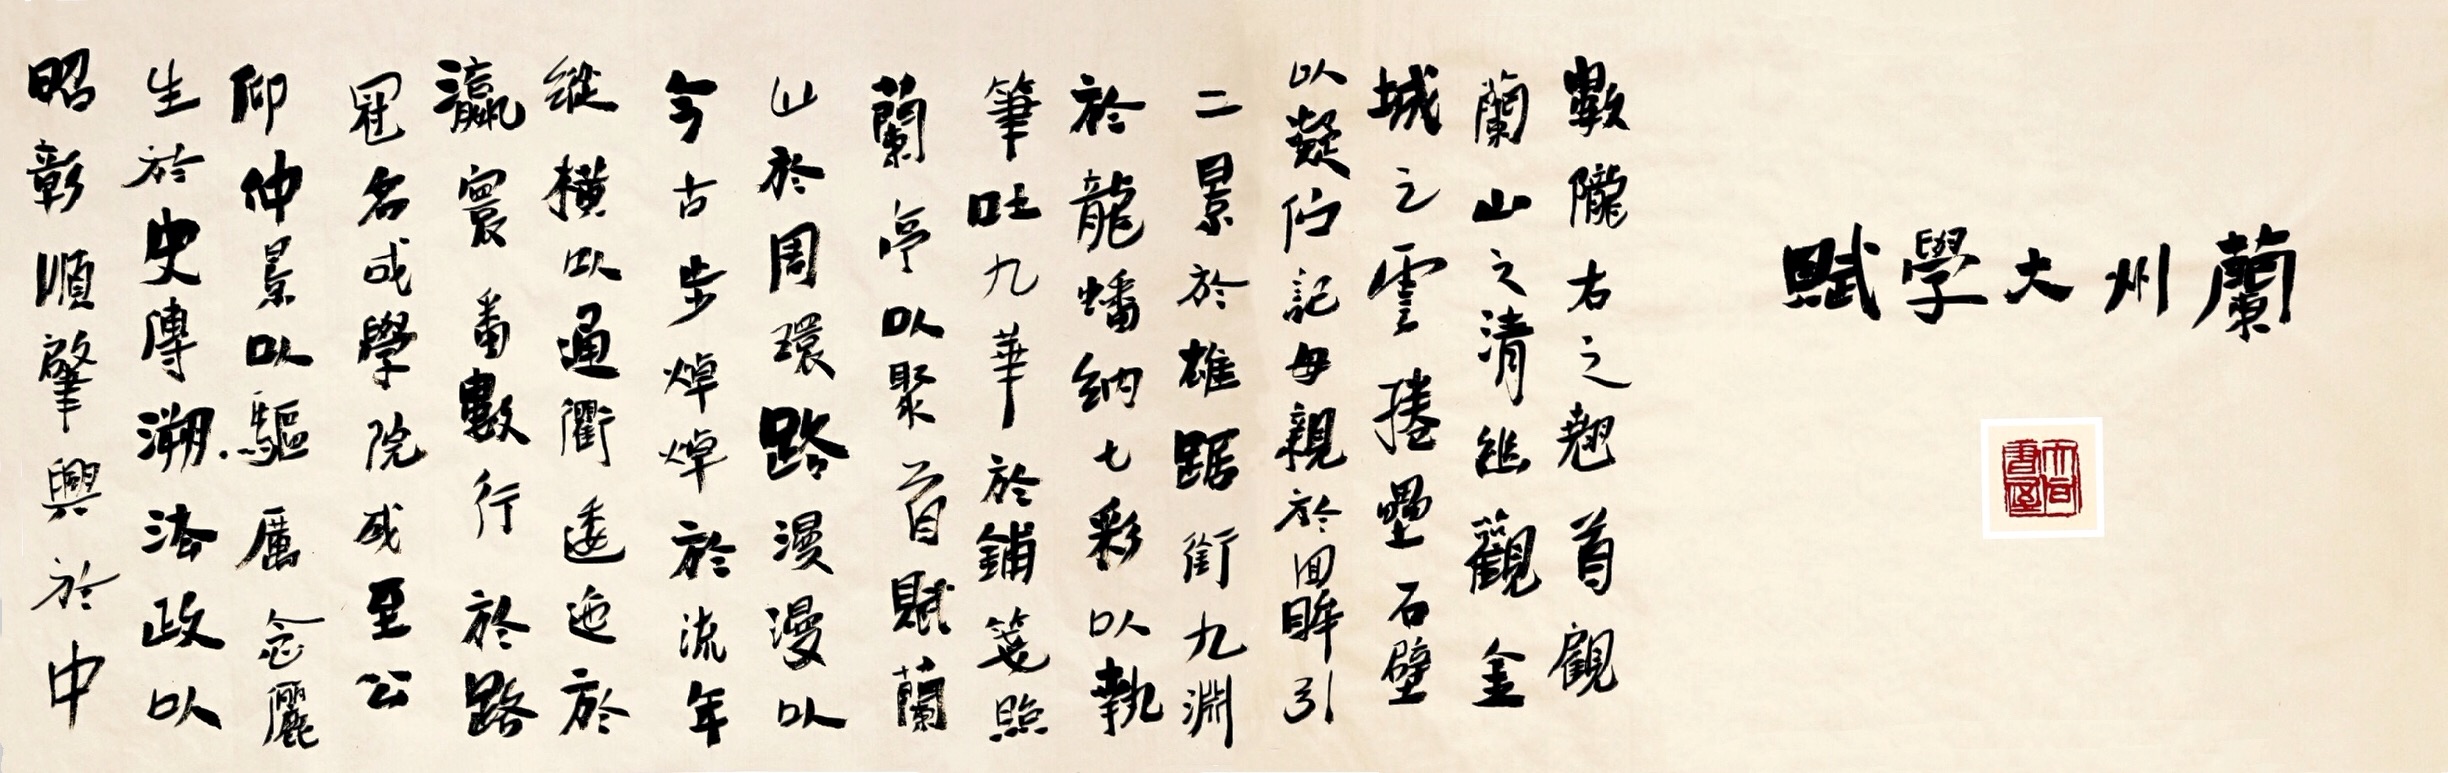 蘭州大學賦
數隴右之翹首觀
蘭山之清幽觀金
城之雲捲壘石壁
以凝佇記母親於回眸引
二景於雄踞銜九淵
於龍蟠納七彩以執
筆吐九華於鋪箋照
蘭亭以聚首賦蘭
山於周環路漫漫以
今古步焯焯於流年
縱橫以通衢逶迤於
瀛寰番數行於路
冠名成學院成至公
仰仲景以驅厲念儷
生於史傳溯法政以
昭彰順肇興於中